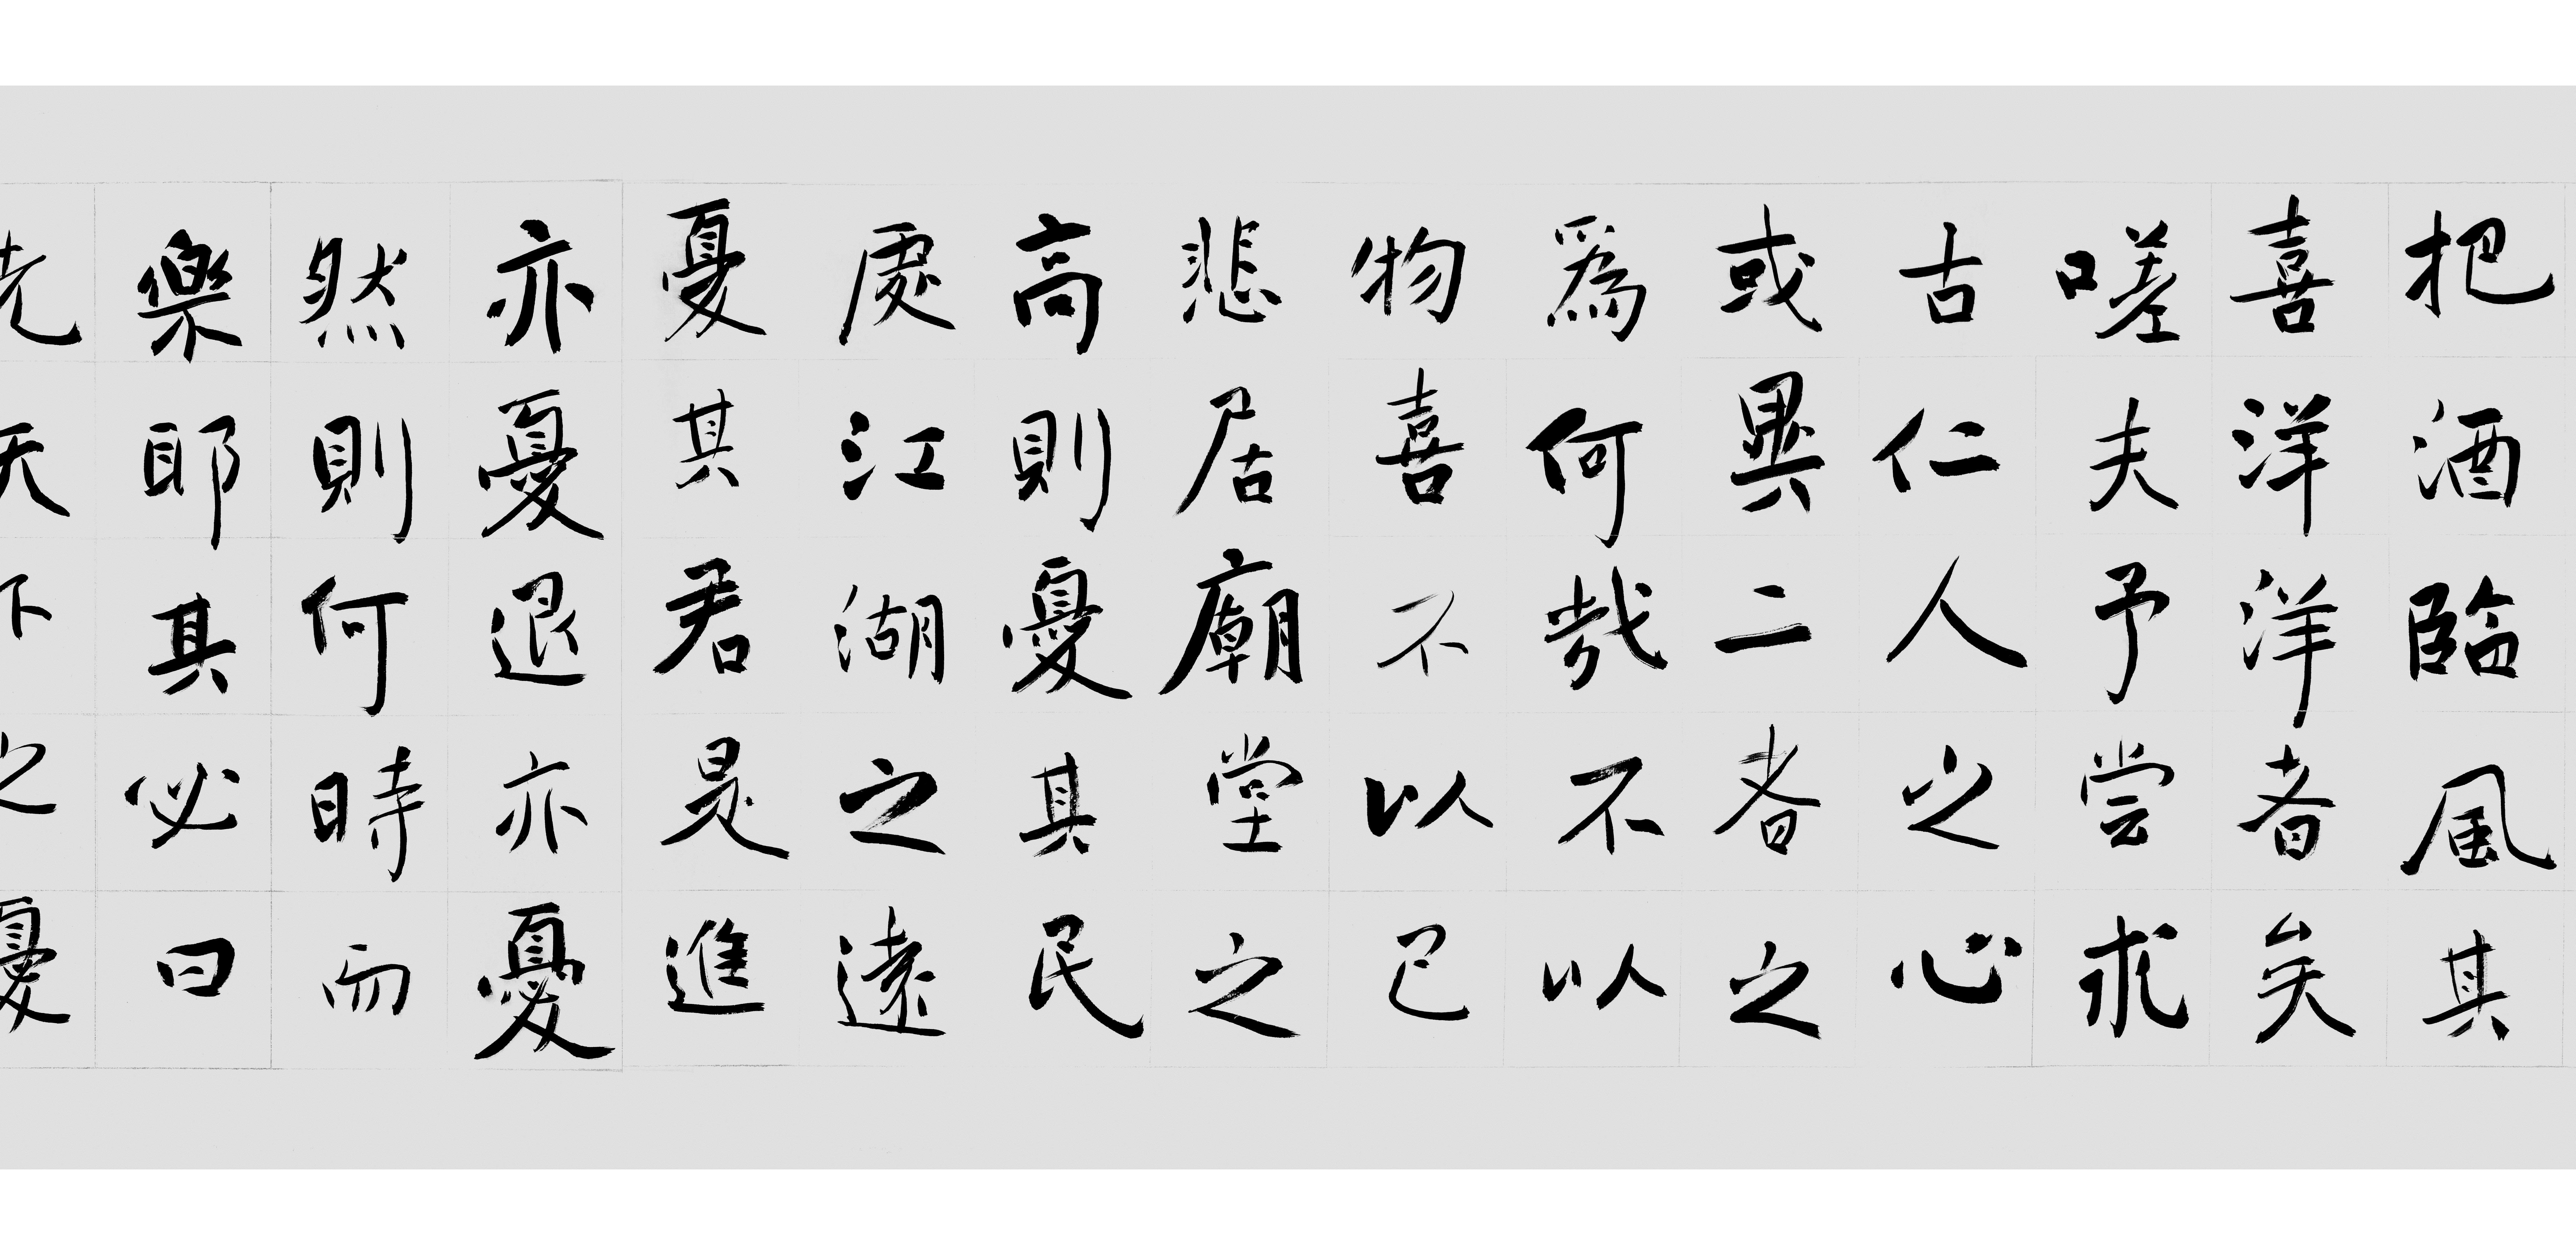 把酒臨風其
喜洋洋者矣
嗟夫予嘗求
古仁人之心
或異二者之
爲何哉不以
物喜不以己
悲居廟堂之
高則憂其民
處江湖之遠
憂其君是進
亦憂退亦憂
然則何時而
樂耶其必曰
先天下之憂